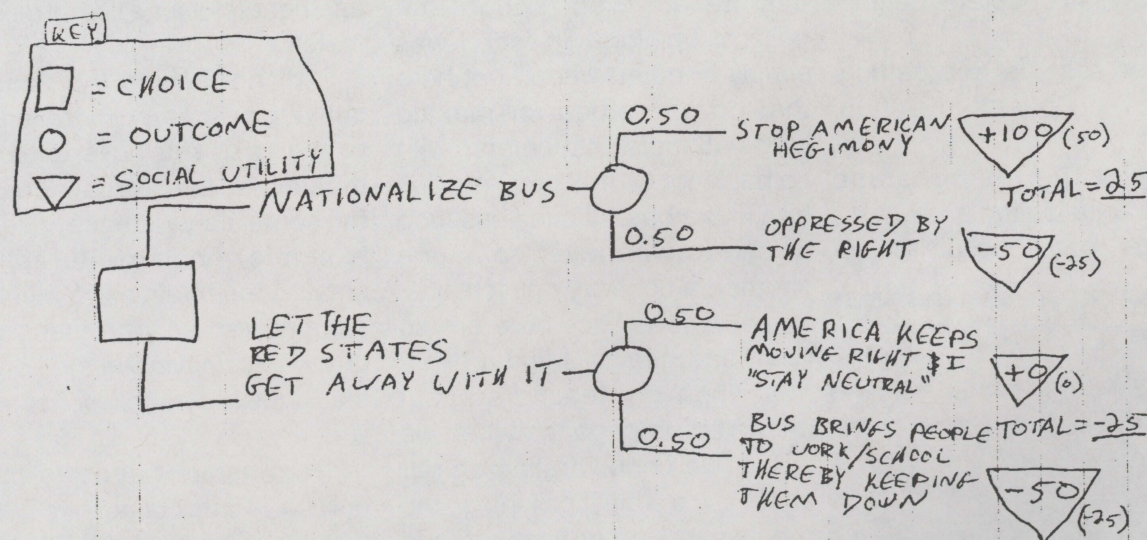 KEY
= CHOICE
= OUTCOME
= SOCIAL UTILITY
NATIONALIZE BUS
0.50
STOP AMERICAN
HEGIMONY
+100 (50)
TOTAL = 25
0.50
OPPRESSED BY
THE RIGHT
-50 (-25)
LET THE
RED STATES
GET AWAY WITH IT
0.50
AMERICA KEEPS
MOVING RIGHT & I
"STAY NEUTRAL"
+0 (0)
TOTAL = -25
0.50
BUS BRINGS PEOPLE
TO WORK/SCHOOL
THEREBY KEEPING
THEM DOWN
-50 (-25)